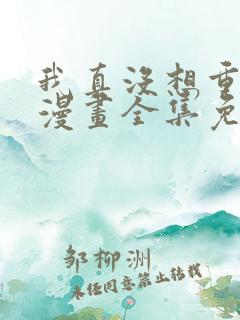 我真没想重
漫畫全集免
邹柳洲
未经同意禁止转载